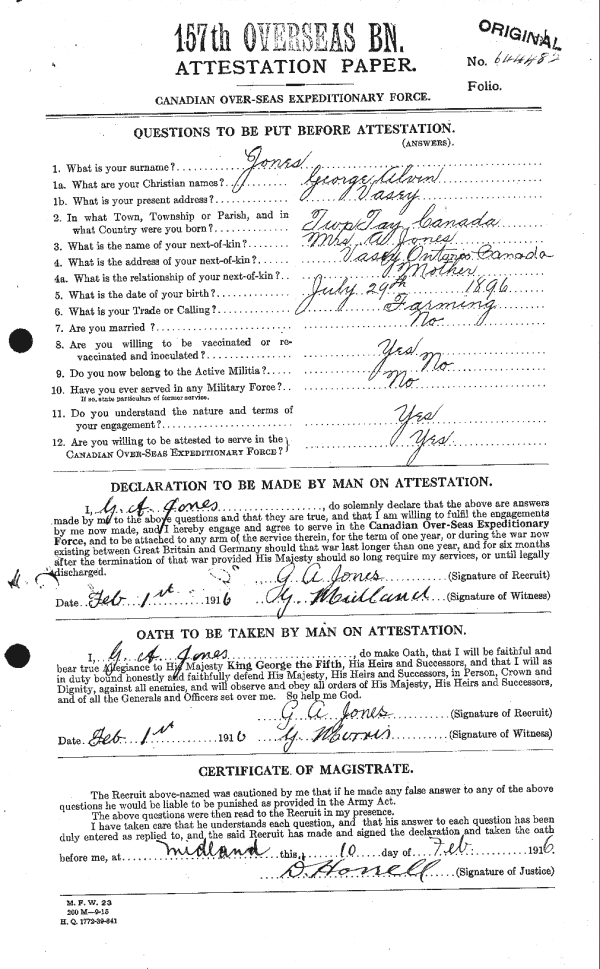 157th OVERSEAS BN.
ORIGINAL
ATTESTATION PAPER.
No. 644482
Folio.
CANADIAN OVER-SEAS EXPEDITIONARY FORCE.
QUESTIONS TO BE PUT BEFORE ATTESTATION.
(ANSWERS).
1. What is your surname? Jones
1a. What are your Christian names? George Alvin
1b. What is your present address? Vasey
2. In what Town, Township or Parish, and in
what Country were you born? Twp Tay Canada
3. What is the name of your next-of-kin? Mrs. A Jones
4. What is the address of your next-of-kin? Vasey Ontario Canada
4a. What is the relationship of your next-of-kin? Mother
5. What is the date of your birth? July 29th 1896
6. What is your Trade or Calling? Farming
7. Are you married ? No
8. Are you willing to be vaccinated or re-
vaccinated and inoculated? Yes
9. Do you now belong to the Active Militia? No
10. Have you ever served in any Military Force? No
If so, state particulars of former service.
11. Do you understand the nature and terms of
your engagement? Yes
12. Are you willing to be attested to serve in the
CANADIAN OVER-SEAS EXPEDITIONARY FORCE? Yes
DECLARATION TO BE MADE BY MAN ON ATTESTATION.
I, G. A. Jones, do solemnly declare that the above are answers
made by me to the above questions and that they are true, and that I am willing to fulfil the engagements
by me now made, and I hereby engage and agree to serve in the Canadian Over-Seas Expeditionary
Force, and to be attached to any arm of the service therein, for the term of one year, or during the war now
existing between Great Britain and Germany should that war last longer than one year, and for six months
after the termination of that war provided His Majesty should so long require my services, or until legally
discharged.
G A Jones (Signature of Recruit)
Date Feb 1st 1916 (Signature of Witness)
OATH TO BE TAKEN BY MAN ON ATTESTATION.
I, G. A. Jones, do make Oath, that I will be faithful and
bear true Allegiance to His Majesty King George the Fifth, His Heirs and Successors, and that I will as
in duty bound honestly and faithfully defend His Majesty, His Heirs and Successors, in Person, Crown and
Dignity, against all enemies, and will observe and obey all orders of His Majesty, His Heirs and Successors,
and of all the Generals and Officers set over me. So help me God.
G A Jones (Signature of Recruit)
Date Feb 1st 1916 Morris (Signature of Witness)
CERTIFICATE OF MAGISTRATE.
The Recruit above-named was cautioned by me that if he made any false answer to any of the above
questions he would be liable to be punished as provided in the Army Act.
The above questions were then read to the Recruit in my presence.
I have taken care that he understands each question, and that his answer to each question has been
duly entered as replied to, and the said Recruit has made and signed the declaration and taken the oath
before me, at Midland this 10 day of Feb 1916
(Signature of Justice)
M. F. W. 23
200 M—9-15
H. Q. 1772-39-841